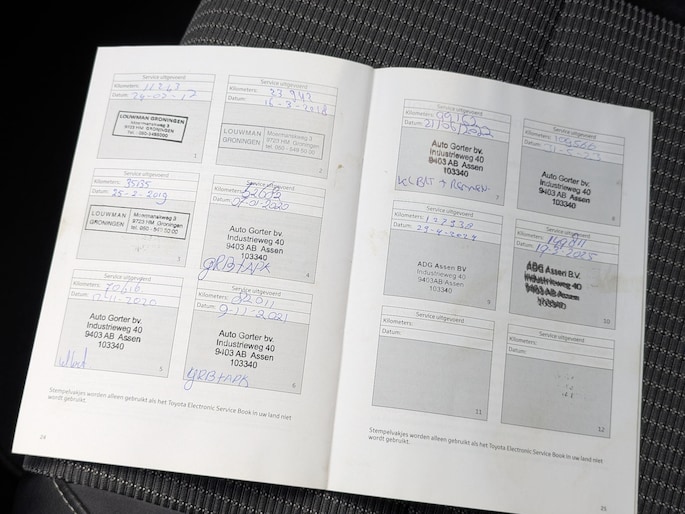 Service uitgevoerd
Kilometers:
Datum: 24-02-17
LOUWMAN GRONINGEN
Moermanskweg 3
9723 HM GRONINGEN
1
Service uitgevoerd
Kilometers: 23.943
Datum: 16-3-2018
LOUWMAN GRONINGEN
Moermanskweg 3
9723 HM. Groningen
tel. 050 - 549 50 00
2
Service uitgevoerd
Kilometers: 35135
Datum: 25-2-2019
LOUWMAN GRONINGEN
Moermanskweg 3
9723 HM. Groningen
tel. 050 - 549 50 00
3
Service uitgevoerd
Kilometers:
Datum: 07-01-2020
Auto Gorter bv.
Industrieweg 40
9403 AB Assen
103340
GRB+APK
4
Service uitgevoerd
Kilometers: 70616
Datum: -11-2020
Auto Gorter bv.
Industrieweg 40
9403 AB Assen
103340
5
Service uitgevoerd
Kilometers: 82011
Datum: 9-11-2021
Auto Gorter bv.
Industrieweg 40
9403 AB Assen
103340
GRB+APK
6
Stempelvakjes worden alleen gebruikt als het Toyota Electronic Service Book in uw land niet
wordt gebruikt.
24
Service uitgevoerd
Kilometers: 99162
Datum: 21/06/2022
Auto Gorter bv.
Industrieweg 40
9403 AB Assen
103340
7
Service uitgevoerd
Kilometers:
Datum:
Auto Gorter bv.
Industrieweg 40
9403 AB Assen
103340
8
Service uitgevoerd
Kilometers:
Datum:
ADG Assen BV
Industrieweg 40
9403AB Assen
103340
9
Service uitgevoerd
Kilometers:
Datum:
ADG Assen B.V.
10
Service uitgevoerd
Kilometers:
Datum:
11
Service uitgevoerd
Kilometers:
Datum:
12
Stempelvakjes worden alleen gebruikt als het Toyota Electronic Service Book in uw land niet
wordt gebruikt.
25